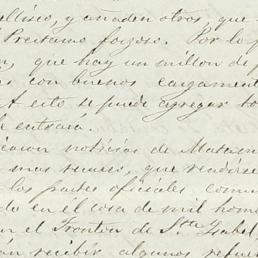 ellisco, y añaden otros, que
Prestamo forzoso. Por lo
que hay un millon de
con buenos cargament
A esto se puede agregar to
entraria.
noticias de Matam
mas recurso, que rendirse
los partes oficiales, comu
do en él cosa de mil hom
en el Fronton de Sta Isabel,
recibir algunos refue